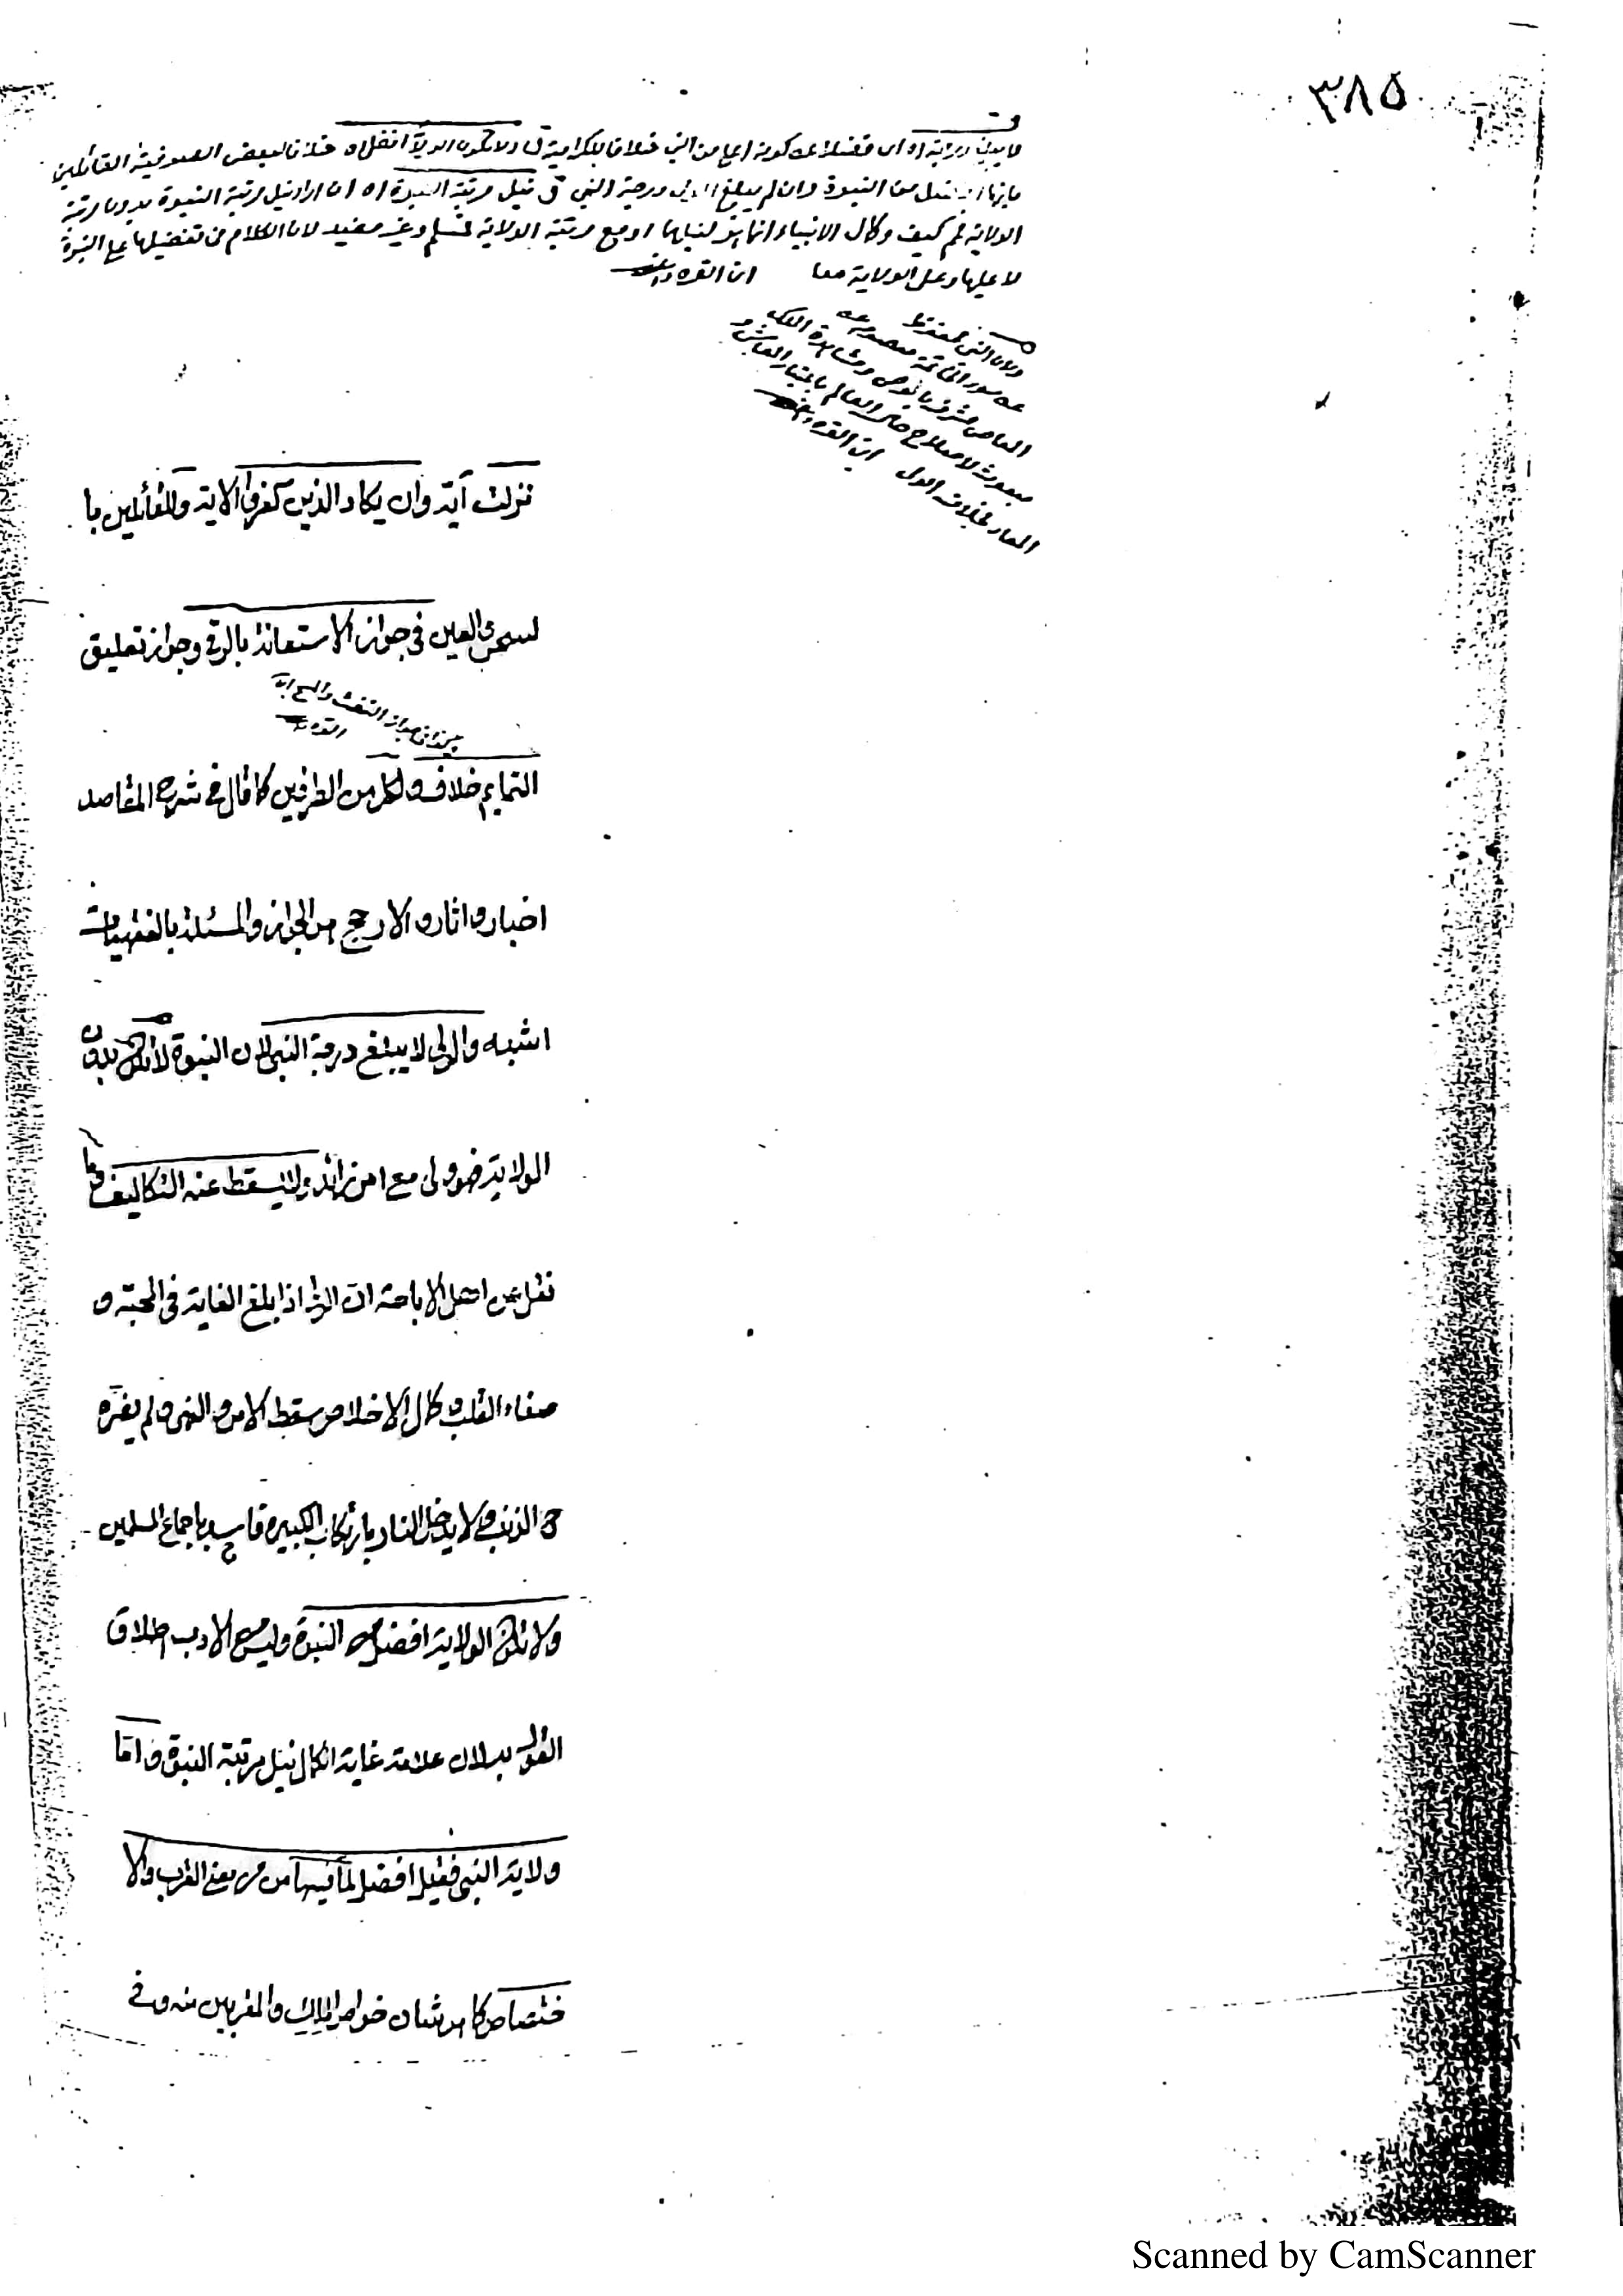 ٣٨٥
لا يبلغ درجته اه اى فضلا عن كونه اعلى من النبى خلافا للكرامية قد ولا تكون الولاية افضل اه خلافا لبعض الصوفية القائلين
بانها افضل من النبوة وان لم يبلغ الولى درجة النبى قد نيل مرتبة النبوة اه ان اراد نيل مرتبة النبوة بدون مرتبة
الولاية لم كيف وكمال الانبياء انما هو لنيلها او مع مرتبة الولاية فمسلم وغير مفيد لان الكلام فى تفضيلها على النبوة
لا عليها وعلى الولاية معا ابن القره داغى
ولان النبى محفوظ
عن سوء الخاتمة معصوم عن
المعاصى مشرف بالوحى ومشاهدة الملك
مبعوث لاصلاح حال العالم بامتثال المعاش و
المعاد بخلاف الولى ابن القره داغى
نزلت آية وان يكاد الذين كفروا الاية وللقائلين با
لسحر والعين فى جواز الاستعانة بالرقى وجواز تعليق
جواز النفث والمسح ابن
القره
التمايم خلاف ولكل من الطرفين كما قال فى شرح المقاصد
اخبار واثار والارجح هو الجواز والمسئلة بالفقهيات
اشبه والولى لا يبلغ درجة النبى لان النبوة لا تكون بدون
الولاية فهو ولى مع امر زائد ولا يسقط عنه التكاليف وما
نقل عن اهل الاباحة ان الولى اذا بلغ الغاية فى المحبة و
صفاء القلب وكمال الاخلاص سقط الامر والنهى ولم يضره
ح الذنب ولا يدخل النار بارتكاب الكبيرة فاسد باجماع المسلمين
ولا تكون الولاية افضل من النبوة وليس من الادب اطلاق
القول به لان علامة غاية الكمال نيل مرتبة النبوة واما
ولاية النبى فقيل افضل لما فيها من معنى القرب والا
ختصاص كما هو شان خواص الملك والمقربين منه وفى
Scanned by CamScanner